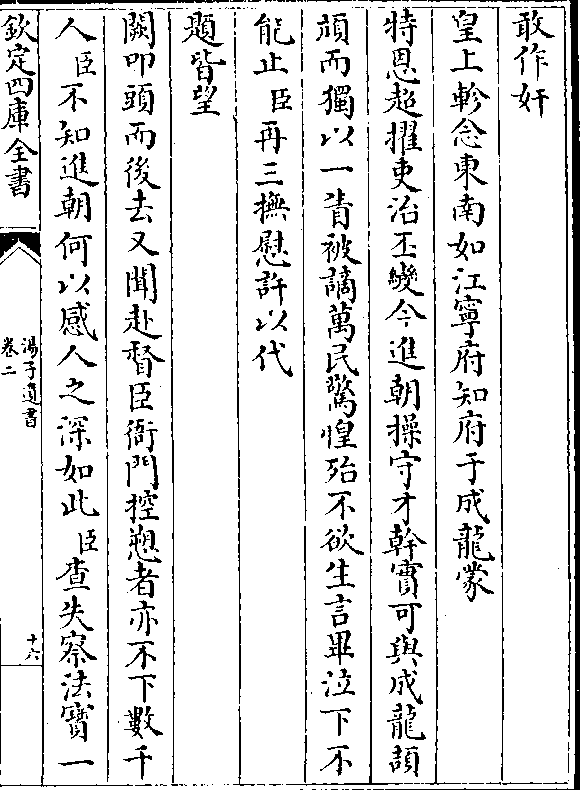 敢作奸
皇上軫念東南如江寧府知府于成龍蒙
特恩超擢吏治丕變今進朝操守才幹實可與成龍頡
頏而獨以一眚被謫萬民驚惶殆不欲生言畢泣下不
能止臣再三撫慰許以代
題皆望
闕叩頭而後去又聞赴督臣衙門控愬者亦不下數千
人臣不知進朝何以感人之深如此臣查失察法寶一
欽定四庫全書
湯子遺書
卷二
十六